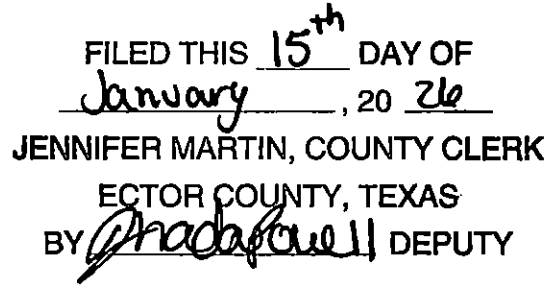 FILED THIS 15th DAY OF
January, 20 26
JENNIFER MARTIN, COUNTY CLERK
ECTOR COUNTY, TEXAS
BY DEPUTY